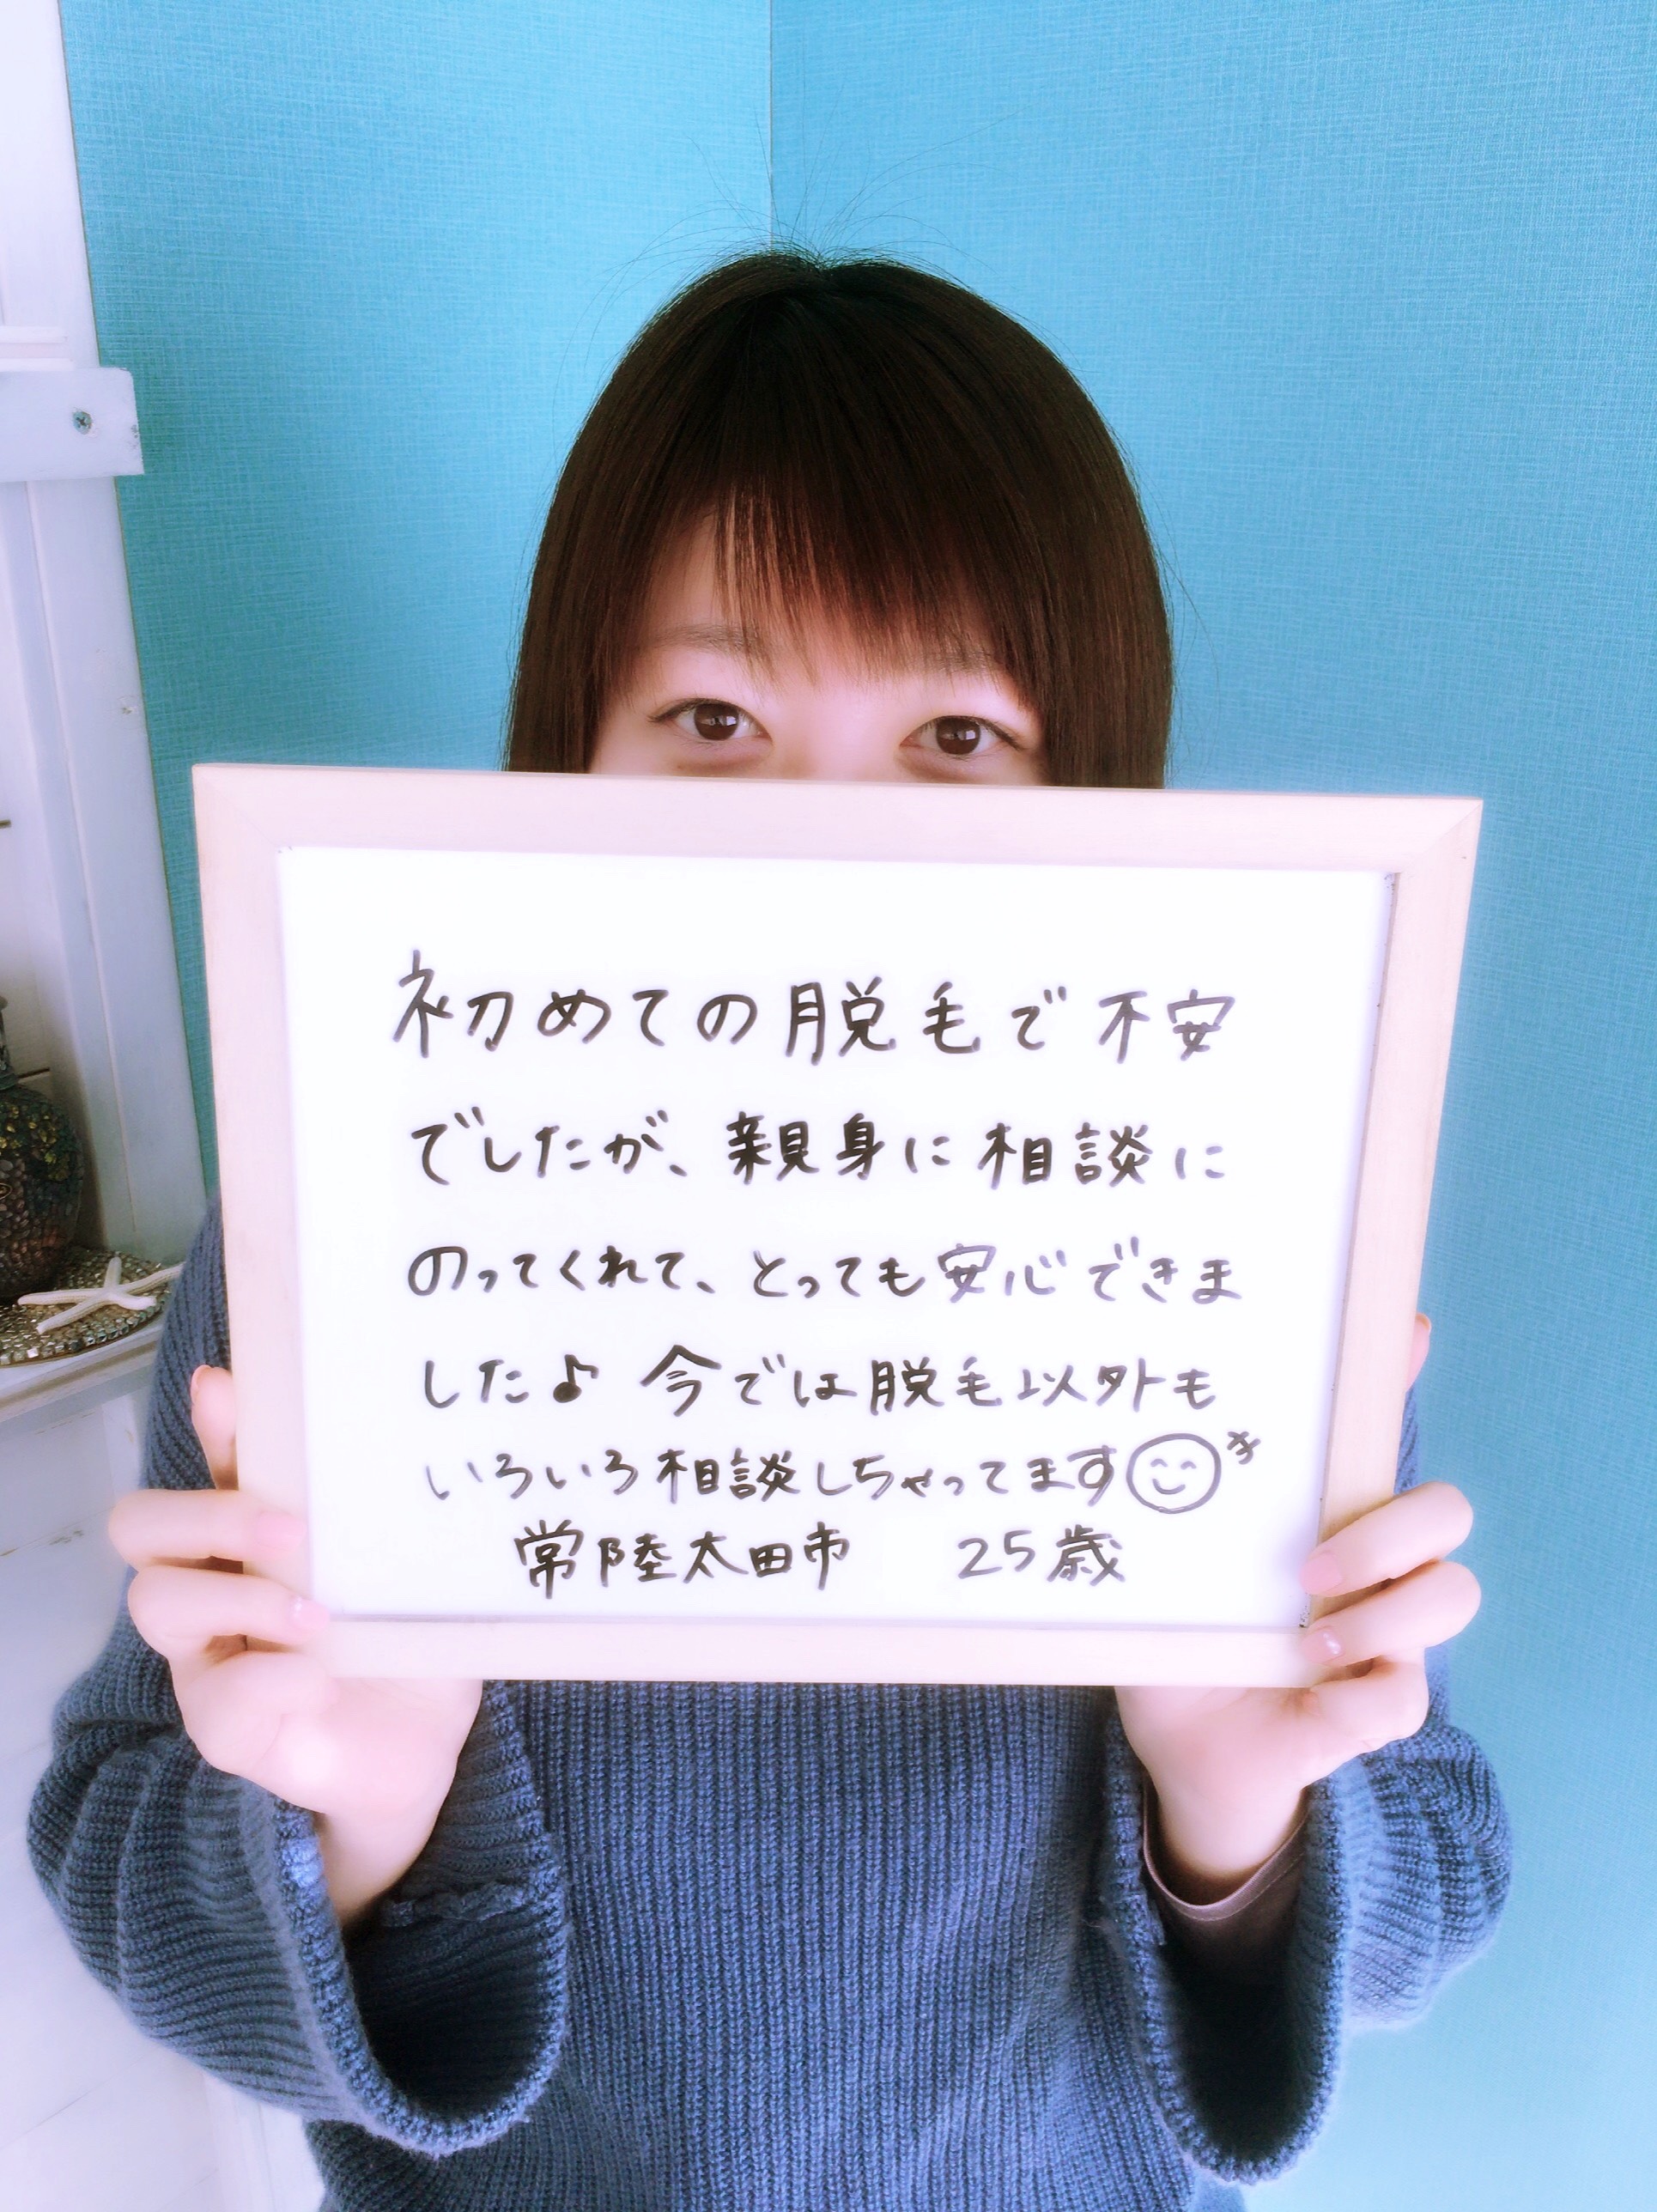 初めての脱毛で不安
でしたが、親身に相談に
のってくれて、とっても安心できま
した♪ 今では脱毛以外も
いろいろ相談しちゃってます
常陸太田市 25歳